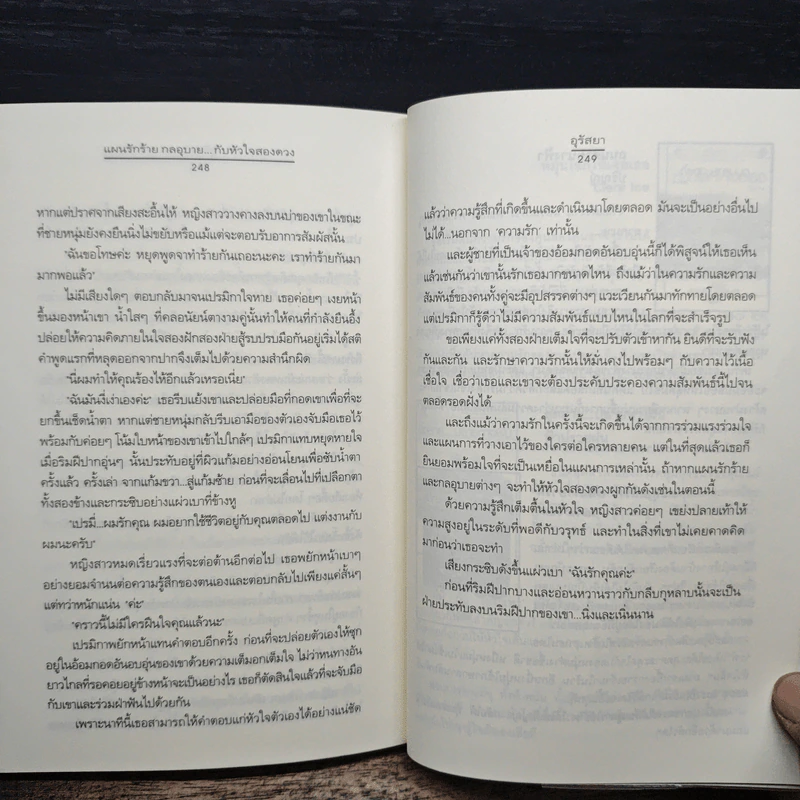 แผนรักร้าย กลอุบาย... กับหัวใจสองดวง
248
หากแต่ปราศจากเสียงสะอื้นไห้ หญิงสาววางคางลงบนบ่าของเขาในขณะ
ที่ชายหนุ่มยังคงยืนนิ่งไม่ขยับหรือแม้แต่จะตอบรับอาการสัมผัสนั้น
"ฉันขอโทษค่ะ หยุดพูดจาทำร้ายกันเถอะนะคะ เราทำร้ายกันมา
มากพอแล้ว"
ไม่มีเสียงใดๆ ตอบกลับมาจนเปรมิกาใจหาย เธอค่อยๆ เงยหน้า
ขึ้นมองหน้าเขา น้ำใสๆ ที่คลอนัยน์ตางามคู่นั้นทำให้คนที่กำลังยืนอึ้ง
ปล่อยให้ความคิดภายในใจสองฝักสองฝ่ายสู้รบปรบมือกันอยู่เริ่มได้สติ
คำพูดแรกที่หลุดออกจากปากจึงเต็มไปด้วยความสำนึกผิด
"นี่ผมทำให้คุณร้องไห้อีกแล้วเหรอเนี่ย"
"ฉันมันงี่เง่าเองค่ะ" เธอรีบแย้งเขาและปล่อยมือที่กอดเขาเพื่อที่จะ
ยกขึ้นเช็ดน้ำตา หากแต่ชายหนุ่มกลับรีบเอามือของตัวเองจับมือเธอไว้
พร้อมกับค่อยๆ โน้มใบหน้าของเขาเข้าไปใกล้ๆ เปรมิกาแทบหยุดหายใจ
เมื่อริมฝีปากอุ่นๆ นั้นประทับอยู่ที่ผิวแก้มอย่างอ่อนโยนเพื่อซับน้ำตา
ครั้งแล้ว ครั้งเล่า จากแก้มขวา...สู่แก้มซ้าย ก่อนที่จะเลื่อนไปที่เปลือกตา
ทั้งสองข้างและกระซิบอย่างแผ่วเบาที่ข้างหู
"เปรมี่...ผมรักคุณ ผมอยากใช้ชีวิตอยู่กับคุณตลอดไป แต่งงานกับ
ผมนะครับ"
หญิงสาวหมดเรี่ยวแรงที่จะต่อต้านอีกต่อไป เธอพยักหน้าเบาๆ
อย่างยอมจำนนต่อความรู้สึกของตนเองและตอบกลับไปเพียงแค่สั้นๆ
แต่ทว่าหนักแน่น "ค่ะ"
"คราวนี้ไม่มีใครฝืนใจคุณแล้วนะ"
เปรมิกาพยักหน้าแทนคำตอบอีกครั้ง ก่อนที่จะปล่อยตัวเองให้ซุก
อยู่ในอ้อมกอดอันอบอุ่นของเขาด้วยความเต็มอกเต็มใจ ไม่ว่าหนทางอัน
ยาวไกลที่รอคอยอยู่ข้างหน้าจะเป็นอย่างไร เธอก็ตัดสินใจแล้วที่จะจับมือ
กับเขาและร่วมฝ่าฟันไปด้วยกัน
เพราะนาทีนี้เธอสามารถให้คำตอบแก่หัวใจตัวเองได้อย่างแน่ชัด
อุรัสยา
249
แล้วว่าความรู้สึกที่เกิดขึ้นและดำเนินมาโดยตลอด มันจะเป็นอย่างอื่นไป
ไม่ได้...นอกจาก 'ความรัก' เท่านั้น
และผู้ชายที่เป็นเจ้าของอ้อมกอดอันอบอุ่นนี้ก็ได้พิสูจน์ให้เธอเห็น
แล้วเช่นกันว่าเขานั้นรักเธอมากขนาดไหน ถึงแม้ว่าในความรักและความ
สัมพันธ์ของคนทั้งคู่จะมีอุปสรรคต่างๆ แวะเวียนกันมาทักทายโดยตลอด
แต่เปรมิกาก็รู้ดีว่าไม่มีความสัมพันธ์แบบไหนในโลกที่จะสำเร็จรูป
ขอเพียงแค่ทั้งสองฝ่ายเต็มใจที่จะปรับตัวเข้าหากัน ยินดีที่จะรับฟัง
กันและกัน และรักษาความรักนั้นให้มั่นคงไปพร้อมๆ กับความไว้เนื้อ
เชื่อใจ เชื่อว่าเธอและเขาจะต้องประคับประคองความสัมพันธ์นี้ไปจน
ตลอดรอดฝั่งได้
และถึงแม้ว่าความรักในครั้งนี้จะเกิดขึ้นได้จากการร่วมแรงร่วมใจ
และแผนการที่วางเอาไว้ของใครต่อใครหลายคน แต่ในที่สุดแล้วเธอก็
ยินยอมพร้อมใจที่จะเป็นเหยื่อในแผนการเหล่านั้น ถ้าหากแผนรักร้าย
และกลอุบายต่างๆ จะทำให้หัวใจสองดวงผูกกันดังเช่นในตอนนี้
ด้วยความรู้สึกเต็มตื้นในหัวใจ หญิงสาวค่อยๆ เขย่งปลายเท้าให้
ความสูงอยู่ในระดับที่พอดีกับวรุทธ์ และทำในสิ่งที่เขาไม่เคยคาดคิด
มาก่อนว่าเธอจะทำ
เสียงกระซิบดังขึ้นแผ่วเบา "ฉันรักคุณค่ะ"
ก่อนที่ริมฝีปากบางและอ่อนหวานราวกับกลีบกุหลาบนั้นจะเป็น
ฝ่ายประทับลงบนริมฝีปากของเขา...นิ่งและเนิ่นนาน